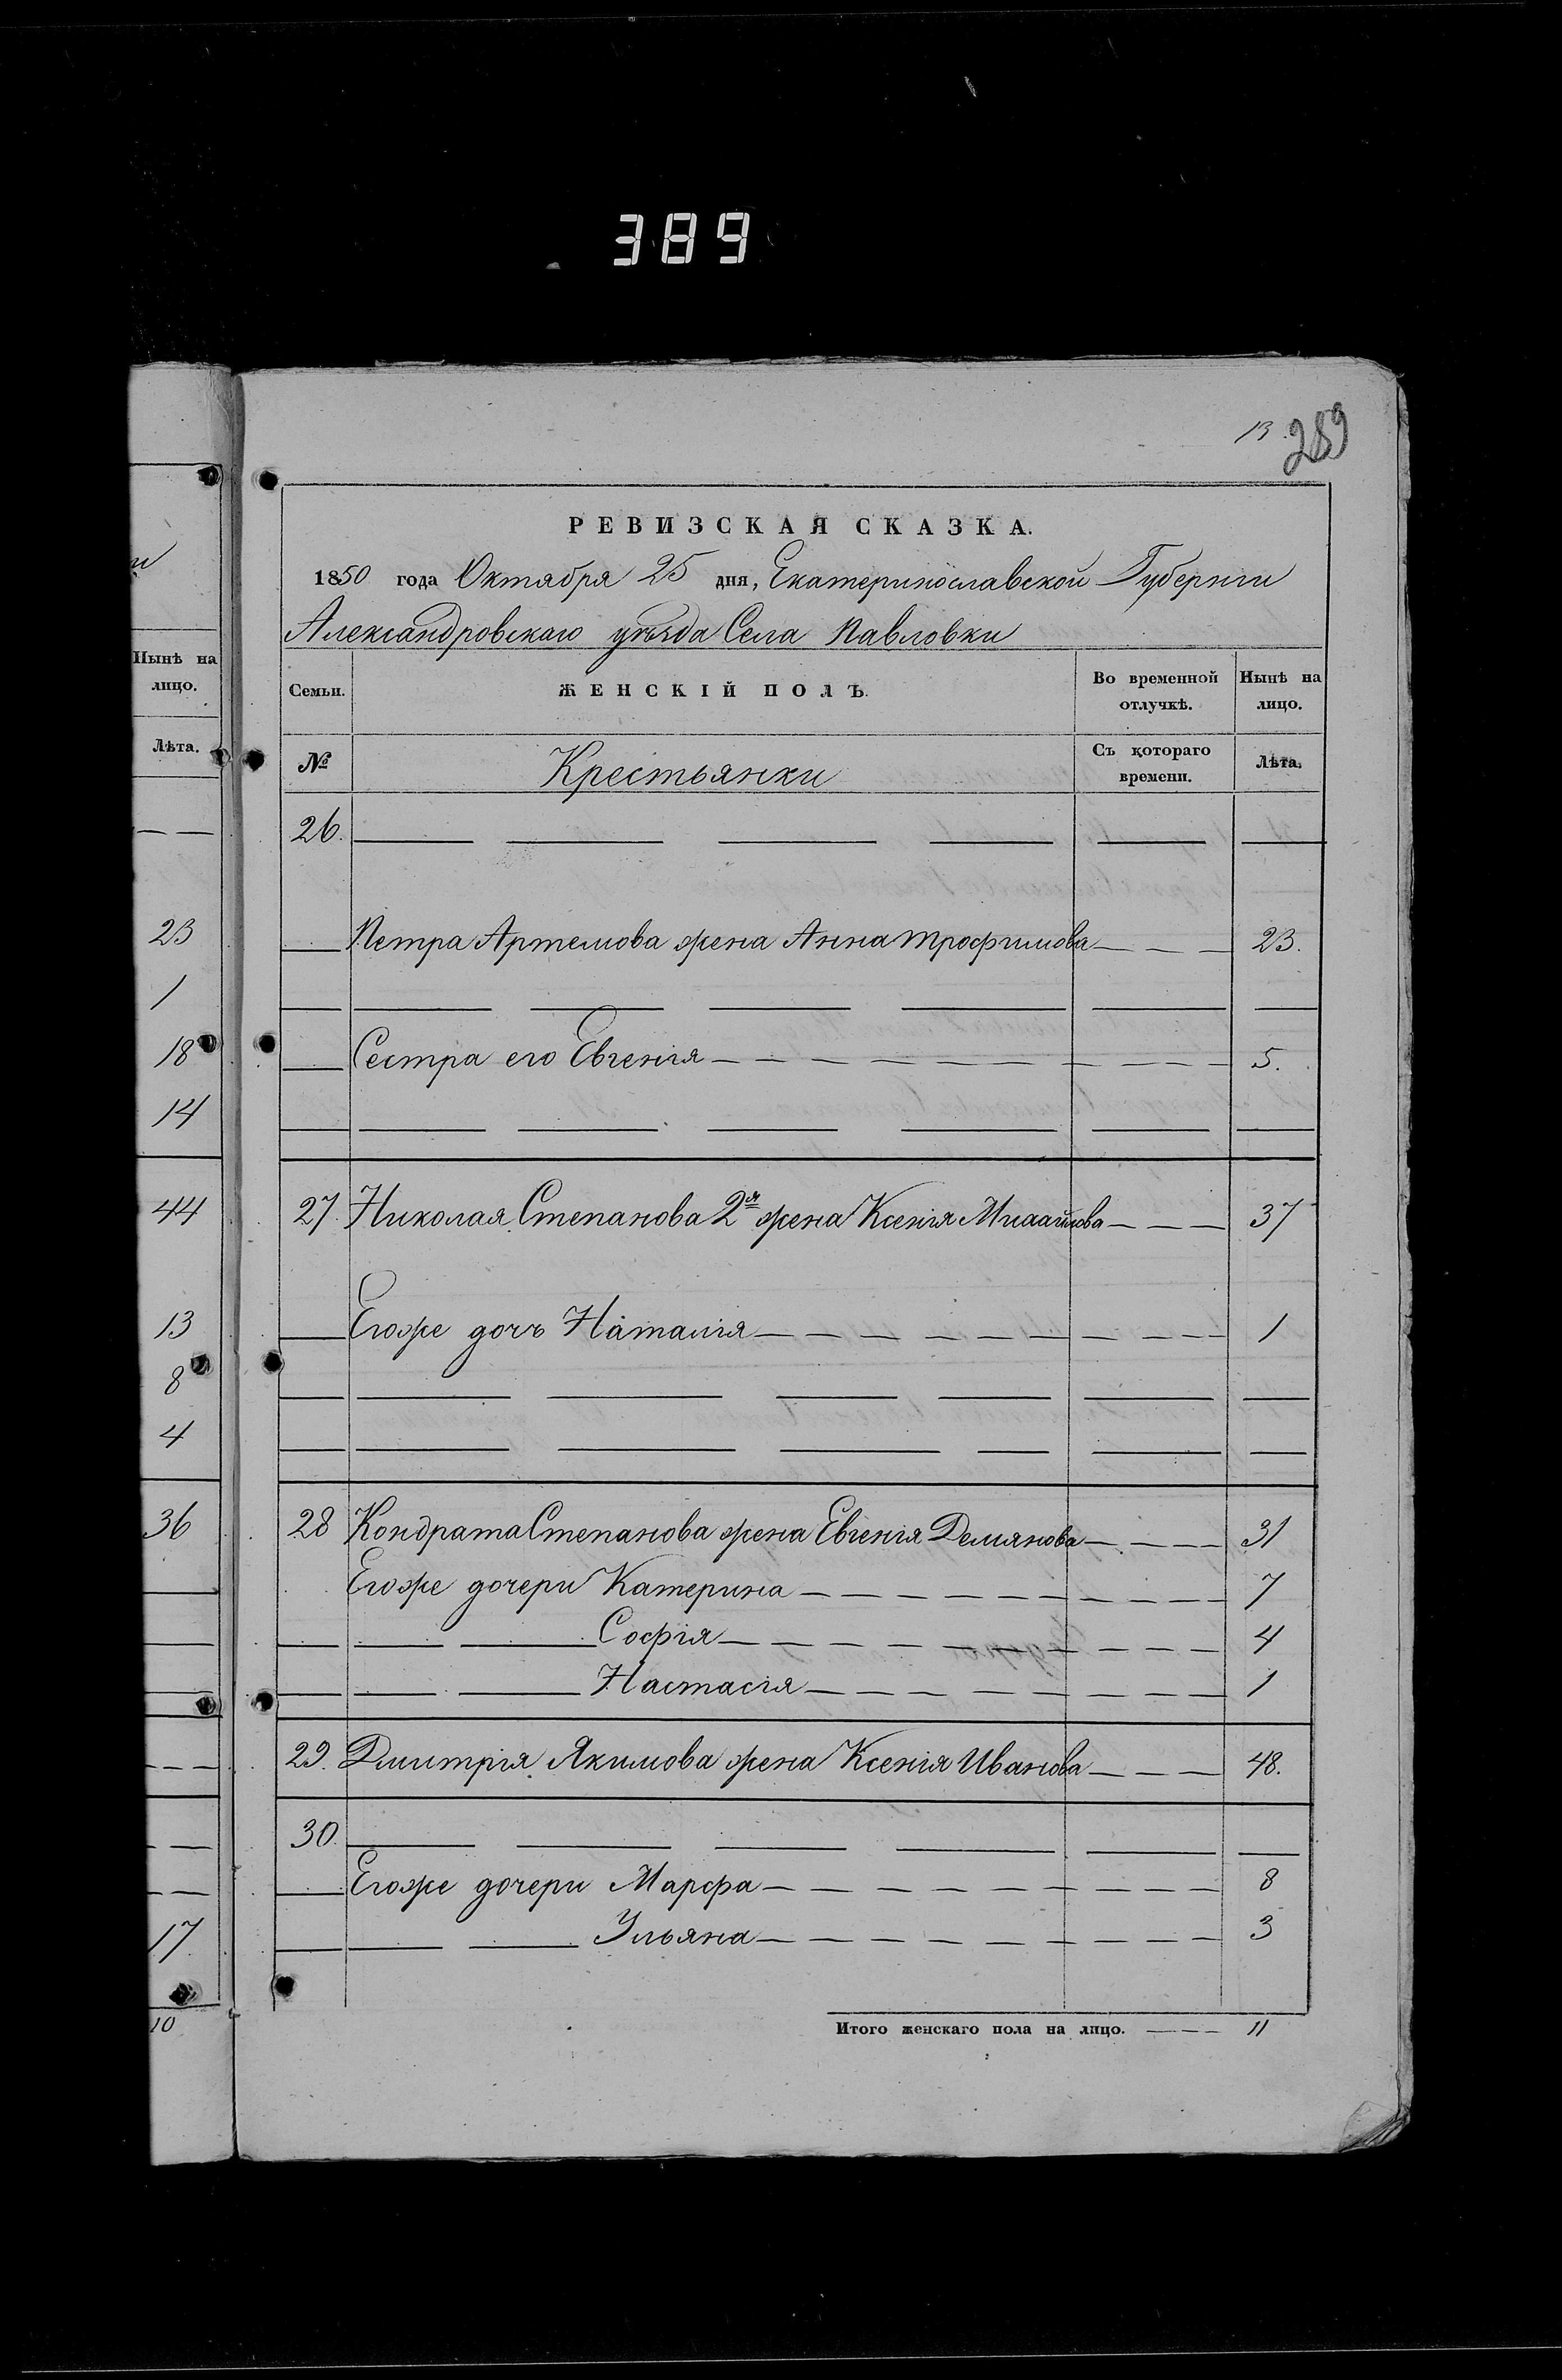 389
13. 289
РЕВИЗСКАЯ СКАЗКА.
1850 года Октября 25 дня, Екатеринославской Губернги
Александровскаго уѣзда Села Павловки
Нынѣ на лицо.
Лѣта.
Семьи.
ЖЕНСКІЙ ПОЛЪ.
Во временной отлучкѣ.
Нынѣ на лицо.
№
Крестьянки
Съ котораго времени.
Лѣта.
26.
23
Петра Артемова жена Анна Трофимова 23.
1
18
Сестра его Евгенія 5.
14
44
27. Николая Степанова 2я жена Ксенія 37
13
Егоже дочъ Наталія 1
8
4
36
28 Кондрата Степанова жена Евгенія Демянова 31
Егоже дочери Катерина 7
Софія 4
Настасія 1
29. Дмитрія Якимова жена Ксенія Иванова 48.
30.
Егоже дочери Марфа 8
17
Ульяна 3
10
Итого женскаго пола на лицо. 11